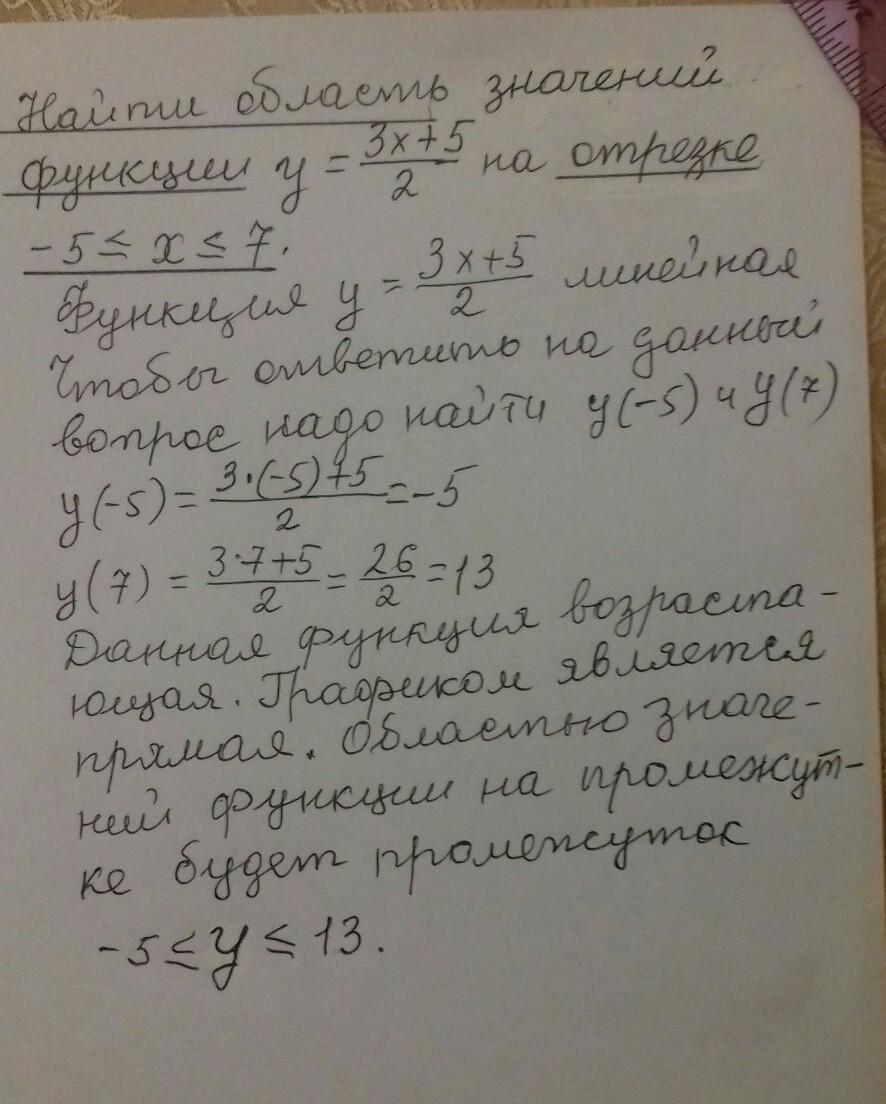 Найти область значений
функции y = \frac{3x+5}{2} на отрезке
-5 ≤ x ≤ 7.
Функция y = \frac{3x+5}{2} линейная
Чтобы ответить на данный
вопрос надо найти y(-5) и y(7)
y(-5) = \frac{3·(-5)+5}{2} = -5
y(7) = \frac{3·7+5}{2} = \frac{26}{2} = 13
Данная функция возраста-
ющая. Графиком является
прямая. Областью значе-
ний функции на промежут-
ке будет промежуток
-5 ≤ y ≤ 13.